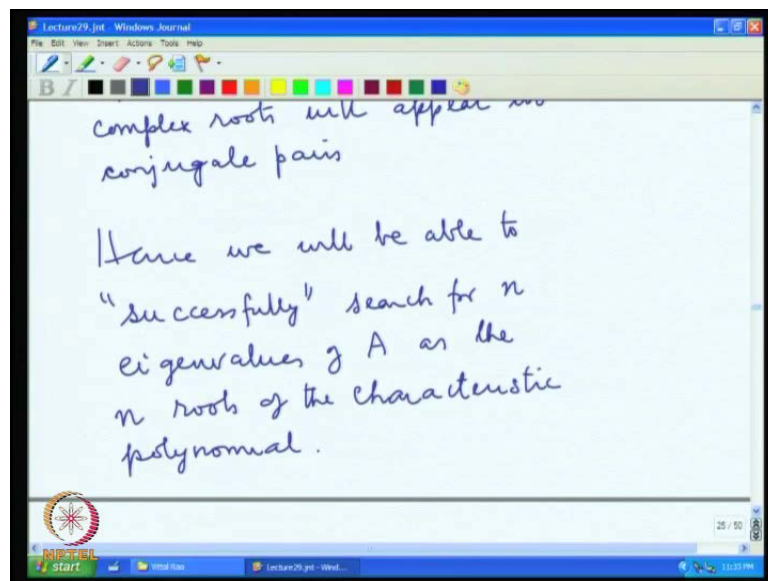 Lecture29.jnt - Windows Journal
File Edit View Insert Actions Tools Help
B I
complex roots will appear in
conjugate pairs
Hence we will be able to
"successfully" search for n
eigenvalues of A as the
n roots of the characteristic
polynomial.
25 / 50
NPTEL
start Vittal Rao Lecture29.jnt - Wind... 11:33 PM